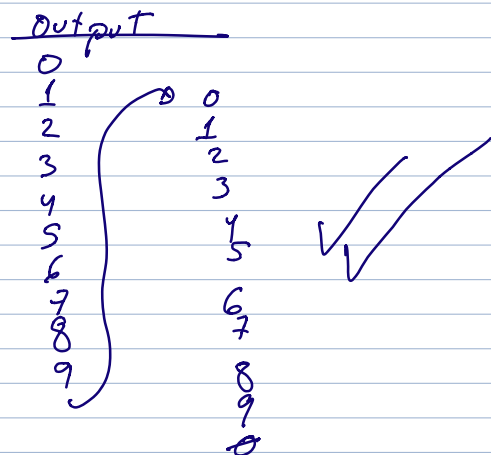 Output
0
1
2
3
4
5
6
7
8
9
0
1
2
3
4
5
6
7
8
9
0